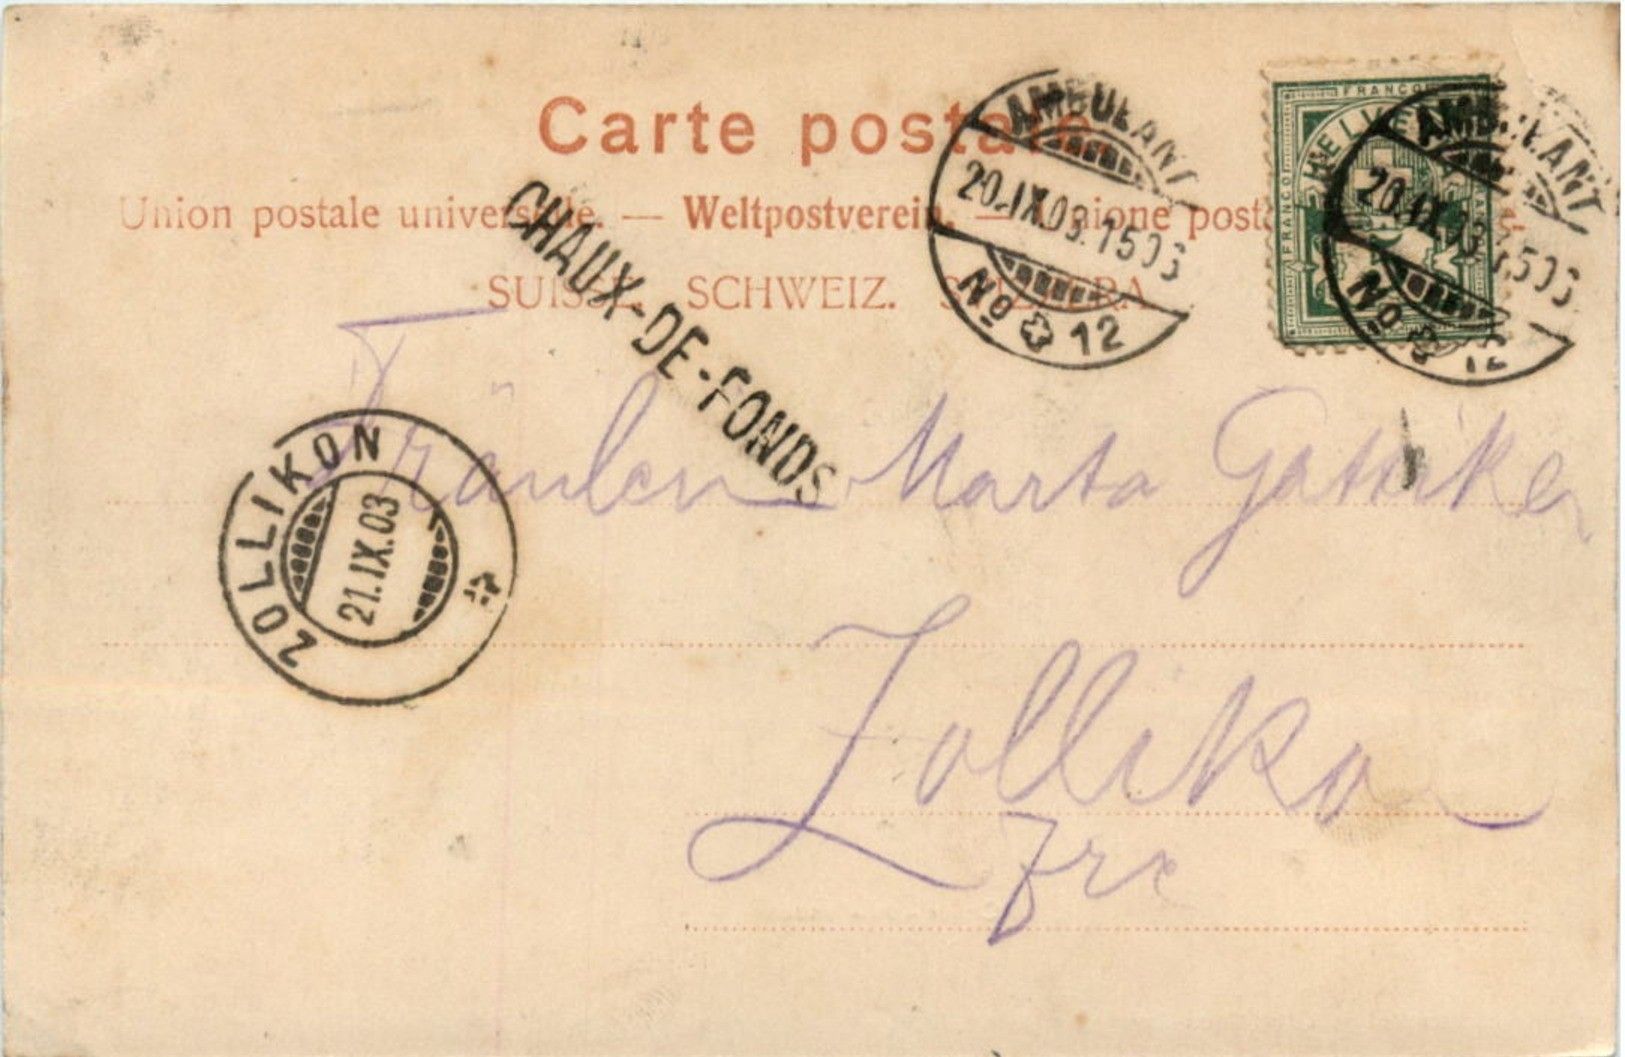 Carte postale
Union postale universelle. — Weltpostverein. — Unione postale
SUISSE. SCHWEIZ. SVIZZERA.
AMBULANT
20.IX.03.1503
No 12
FRANCO
HELVETIA
FRANCO
AMBULANT
20.IX.03.1503
No 12
CHAUX-DE-FONDS
ZOLLIKON
21.IX.03
Fräulein Marta
Zollikon